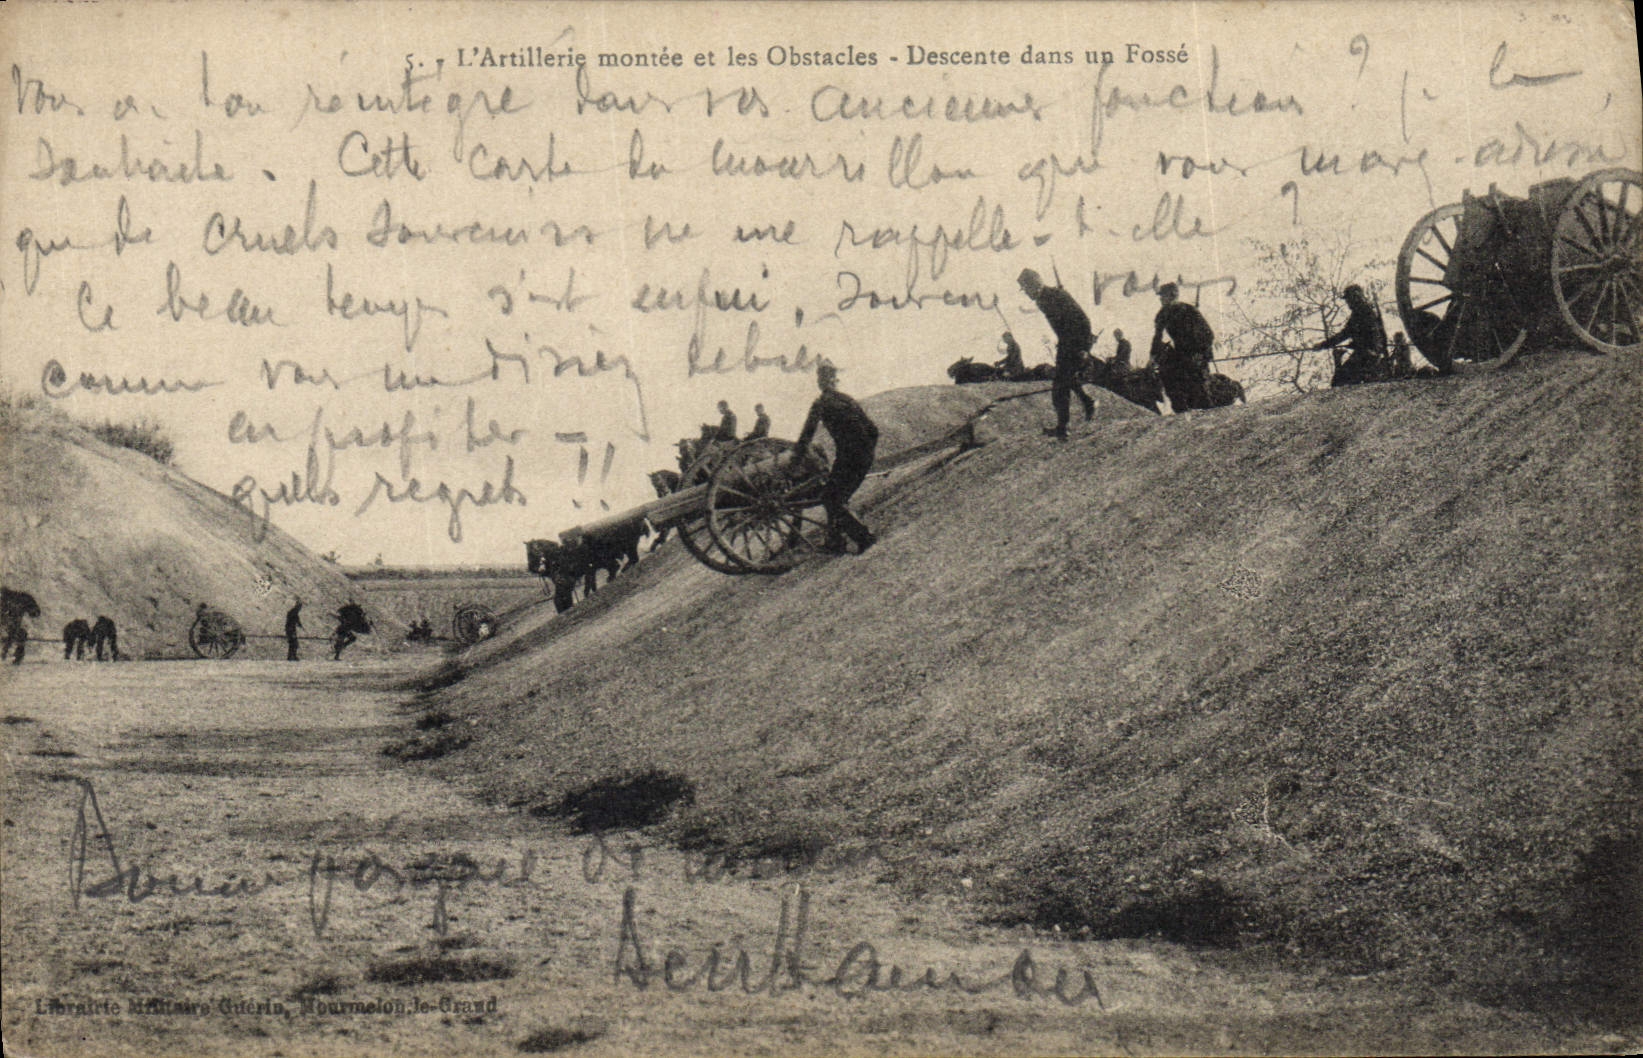 5. - L'Artillerie montée et les Obstacles - Descente dans un Fossé
Vous a-t-on réintégré dans vos anciennes fonctions ? je le
souhaite. Cette carte du Mourrillon que vous m'avez adressé
que de cruels souvenirs ne me rappelle-t-elle ?
Ce beau temps s'est enfui, souvenez-vous
comme vous me disiez
en profiter -
quels regrets !!
Bonne
Librairie Militaire Guérin, Mourmelon-le-Grand